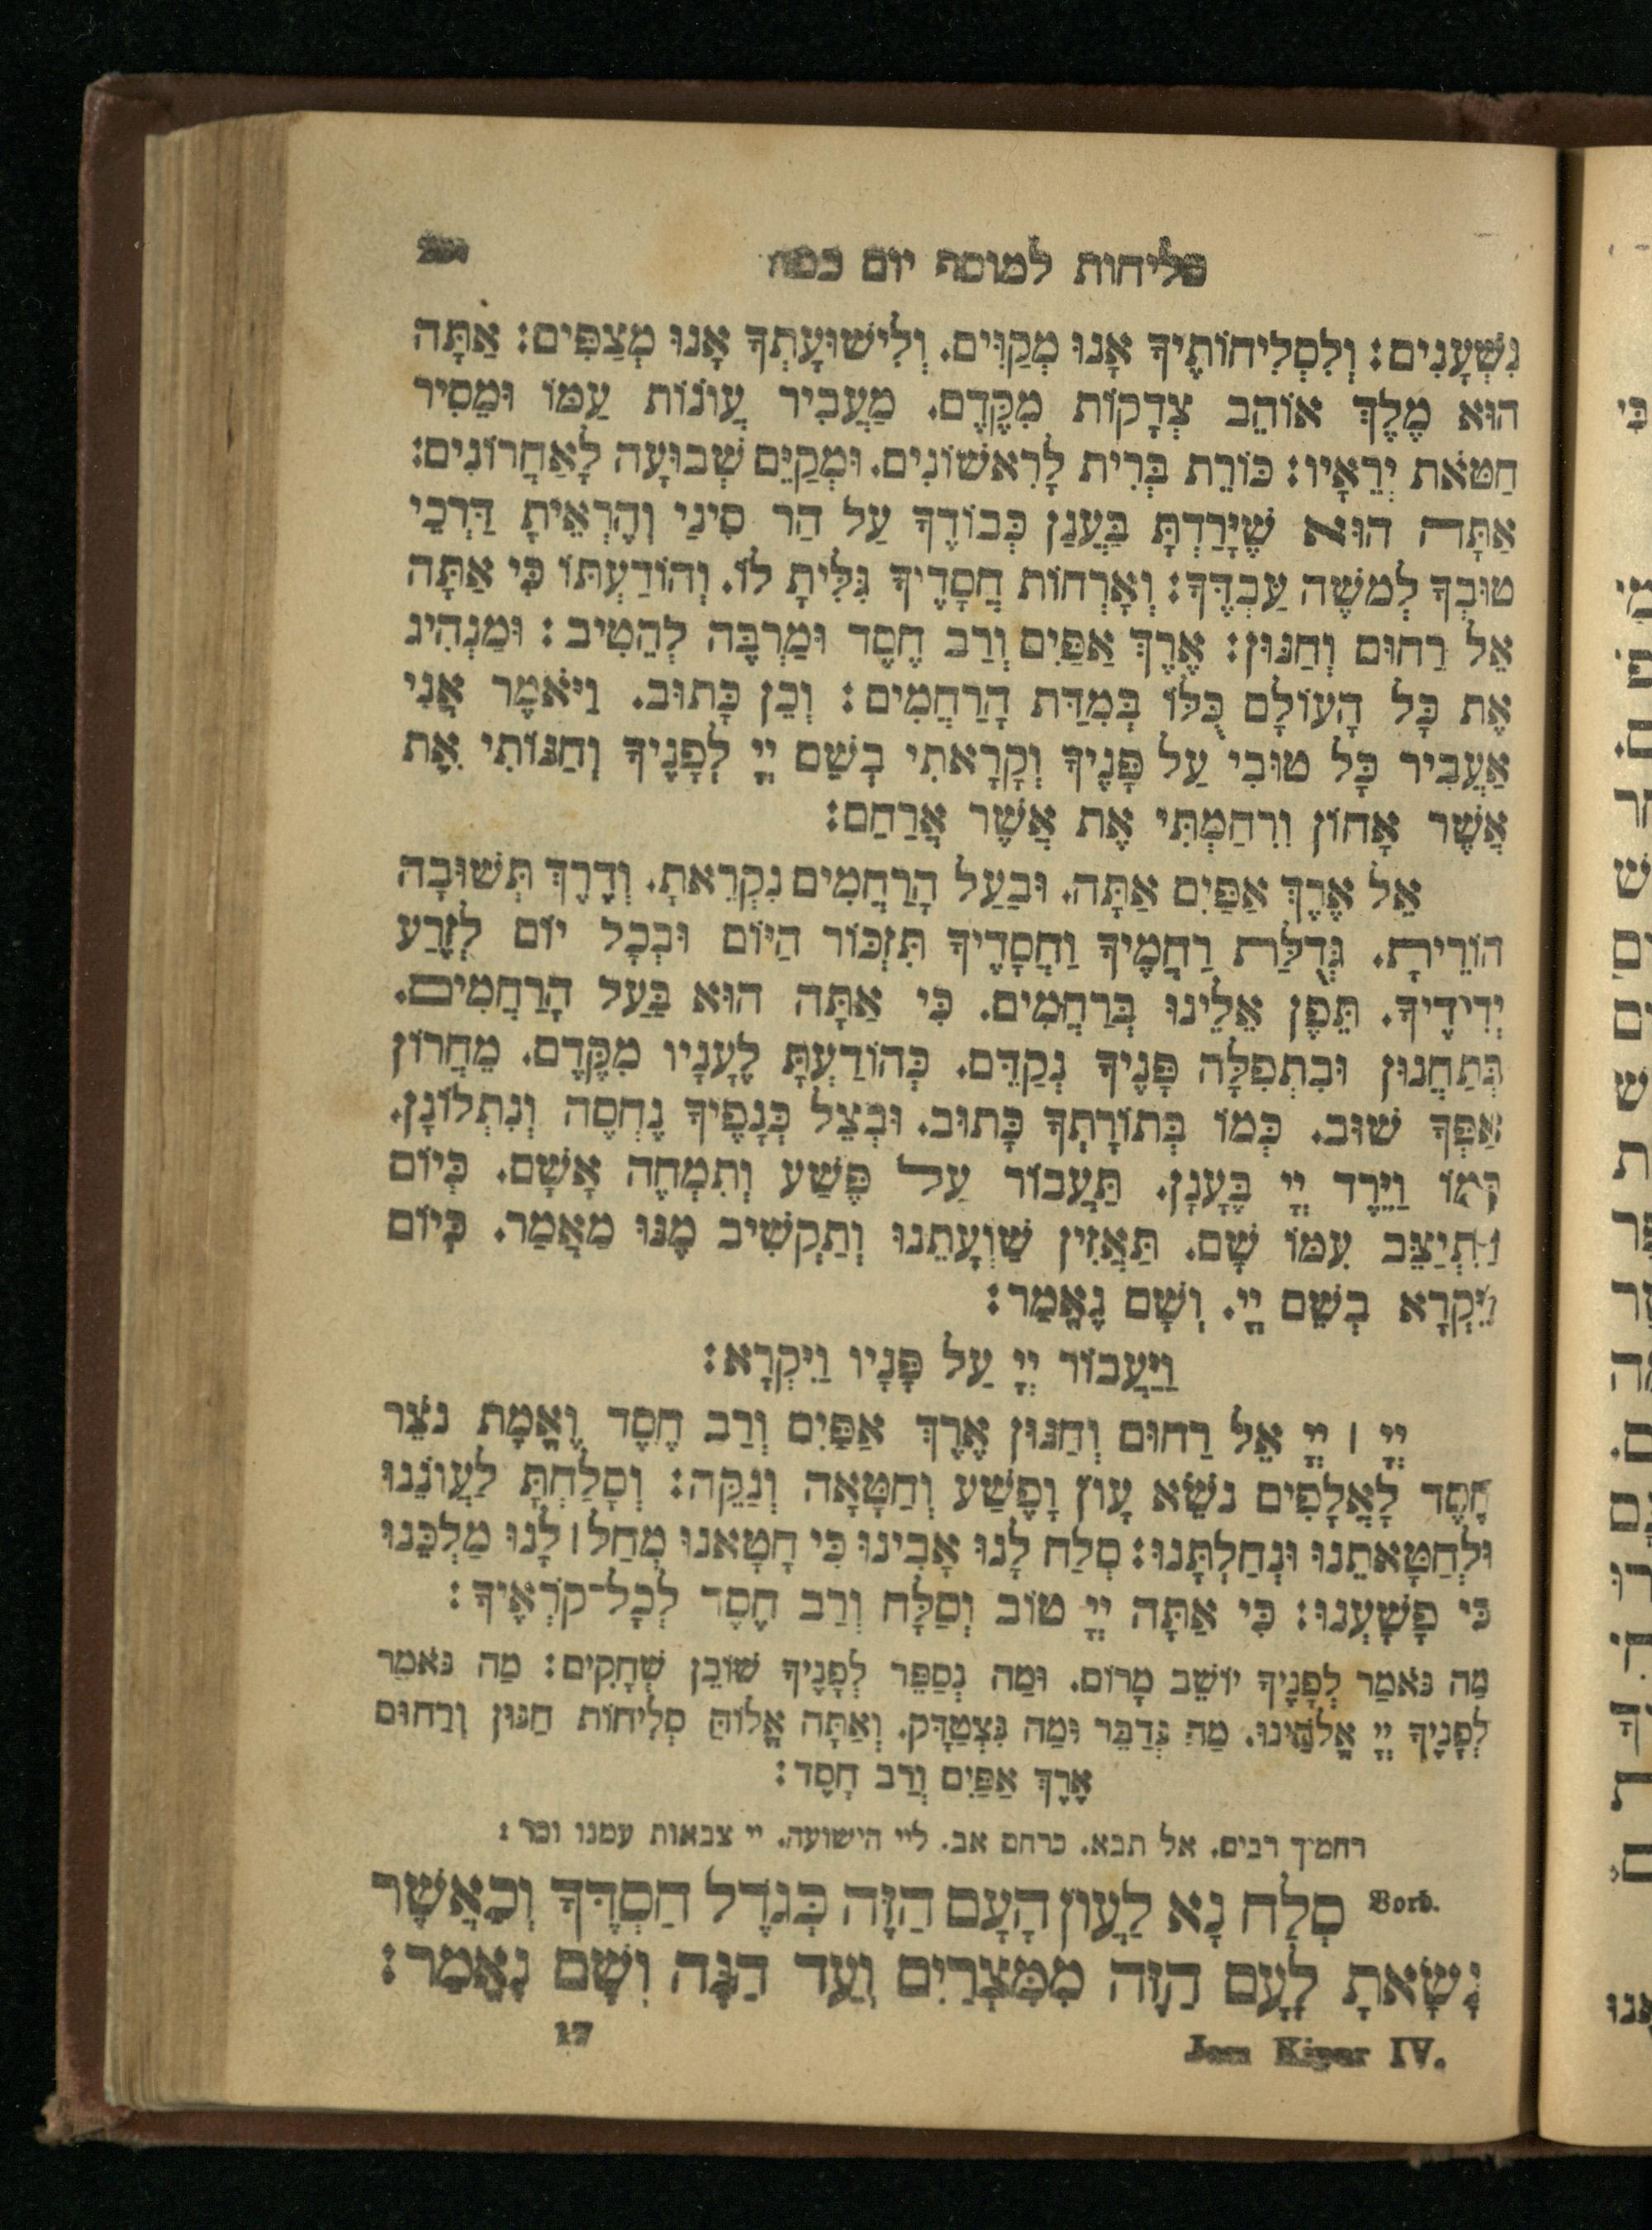 סליחות למוסף יום כפור
נִשְׁעָנִים: וְלִסְלִיחוֹתֶיךָ אָנוּ מְקַוִּים. וְלִישׁוּעָתְךָ אָנוּ מְצַפִּים: אַתָּה
הוּא מֶלֶךְ אוֹהֵב צְדָקוֹת מִקֶּדֶם. מַעֲבִיר עֲוֹנוֹת עַמּוֹ וּמֵסִיר
חַטֹּאת יְרֵאָיו: כּוֹרֵת בְּרִית לָרִאשׁוֹנִים. וּמְקַיֵּם שְׁבוּעָה לָאַחֲרוֹנִים:
אַתָּה הוּא שֶׁיָּרַדְתָּ בַּעֲנַן כְּבוֹדֶךָ עַל הַר סִינַי וְהֶרְאֵיתָ דַּרְכֵי
טוּבְךָ לְמֹשֶׁה עַבְדֶּךָ: וְאָרְחוֹת חֲסָדֶיךָ גִּלִּיתָ לּוֹ. וְהוֹדַעְתּוֹ כִּי אַתָּה
אֵל רַחוּם וְחַנּוּן: אֶרֶךְ אַפַּיִם וְרַב חֶסֶד וּמַרְבֶּה לְהֵטִיב: וּמַנְהִיג
אֶת כָּל הָעוֹלָם כֻּלּוֹ בְּמִדַּת הָרַחֲמִים: וְכֵן כָּתוּב. וַיֹּאמֶר אֲנִי
אַעֲבִיר כָּל טוּבִי עַל פָּנֶיךָ וְקָרָאתִי בְשֵׁם יְיָ לְפָנֶיךָ וְחַנּוֹתִי אֶת
אֲשֶׁר אָחוֹן וְרִחַמְתִּי אֶת אֲשֶׁר אֲרַחֵם:
אֵל אֶרֶךְ אַפַּיִם אַתָּה. וּבַעַל הָרַחֲמִים נִקְרֵאתָ. וְדֶרֶךְ תְּשׁוּבָה
הוֹרֵיתָ. גְּדֻלַּת רַחֲמֶיךָ וַחֲסָדֶיךָ תִּזְכּוֹר הַיּוֹם וּבְכָל יוֹם לְזֶרַע
יְדִידֶיךָ. תֵּפֶן אֵלֵינוּ בְּרַחֲמִים. כִּי אַתָּה הוּא בַּעַל הָרַחֲמִים.
בְּתַחֲנוּן וּבִתְפִלָּה פָּנֶיךָ נְקַדֵּם. כְּהוֹדַעְתָּ לֶעָנָיו מִקֶּדֶם. מֵחֲרוֹן
אַפְּךָ שׁוּב. כְּמוֹ בְּתוֹרָתְךָ כָּתוּב. וּבְצֵל כְּנָפֶיךָ נֶחְסֶה וְנִתְלוֹנָן.
כְּמוֹ וַיֵּרֶד יְיָ בֶּעָנָן. תַּעֲבוֹר עַל פֶּשַׁע וְתִמְחֶה אָשָׁם. כְּיוֹם
וַיִּתְיַצֵּב עִמּוֹ שָׁם. תַּאֲזִין שַׁוְעָתֵנוּ וְתַקְשִׁיב מֶנּוּ מַאֲמַר. כְּיוֹם
וַיִּקְרָא בְשֵׁם יְיָ. וְשָׁם נֶאֱמַר:
וַיַּעֲבוֹר יְיָ עַל פָּנָיו וַיִּקְרָא:
יְיָ ׀ יְיָ אֵל רַחוּם וְחַנּוּן אֶרֶךְ אַפַּיִם וְרַב חֶסֶד וֶאֱמֶת נֹצֵר
חֶסֶד לָאֲלָפִים נֹשֵׂא עָוֹן וָפֶשַׁע וְחַטָּאָה וְנַקֵּה: וְסָלַחְתָּ לַעֲוֹנֵנוּ
וּלְחַטָּאתֵנוּ וּנְחַלְתָּנוּ: סְלַח לָנוּ אָבִינוּ כִּי חָטָאנוּ מְחַל׀ לָנוּ מַלְכֵּנוּ
כִּי פָשָׁעְנוּ: כִּי אַתָּה יְיָ טוֹב וְסַלָּח וְרַב חֶסֶד לְכָל־קֹרְאֶיךָ:
מַה נֹּאמַר לְפָנֶיךָ יוֹשֵׁב מָרוֹם. וּמַה נְסַפֵּר לְפָנֶיךָ שׁוֹכֵן שְׁחָקִים: מַה נֹּאמַר
לְפָנֶיךָ יְיָ אֱלֹהֵינוּ. מַה נְּדַבֵּר וּמַה נִּצְטַדָּק. וְאַתָּה אֱלוֹהַּ סְלִיחוֹת חַנּוּן וְרַחוּם
אֶרֶךְ אַפַּיִם וְרַב חֶסֶד:
רחמיך רבים. אל תבא. כרחם אב. ליי הישועה. יי צבאות עמנו וכו׳:
Vorb. סְלַח נָא לַעֲוֹן הָעָם הַזֶּה כְּגֹדֶל חַסְדֶּךָ וְכַאֲשֶׁר
נָשָׂאתָ לָעָם הַזֶּה מִמִּצְרַיִם וְעַד הֵנָּה וְשָׁם נֶאֱמַר:
Jom Kipur IV. 17